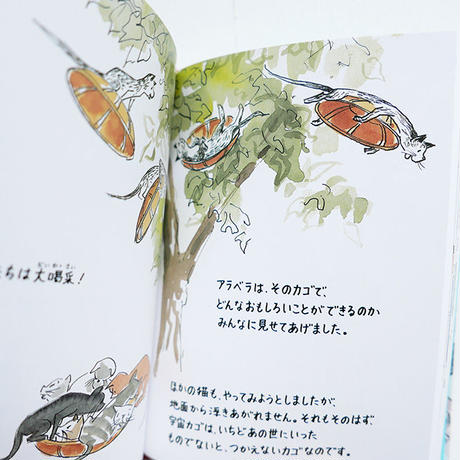 ちは大喝采！
だいかっさい
アラベラは、そのカゴで、
どんなおもしろいことができるのか
みんなに見せてあげました。
ほかの猫も、やってみようとしましたが、
地面から浮きあがれません。それもそのはず、
宇宙カゴは、いちどあの世にいった
ものでないと、つかえないカゴなのです。